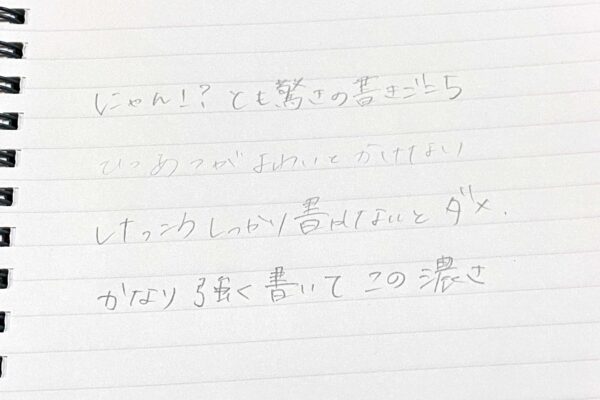 にゃん!?とも驚きの書きごこち
ひつあつがよわいとかけない
けっこうしっかり書けないとダメ.
かなり強く書いてこの濃さ